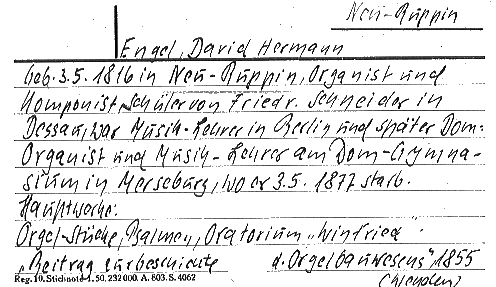 Neu-Ruppin
Engel, David Hermann
geb. 3.5. 1816 in Neu-Ruppin, Organist und
Komponist, Schüler von Friedr. Schneider in
Dessau, war Musik-Lehrer in Berlin und später Dom-
Organist und Musik-Lehrer am Dom-Gymna-
sium in Merseburg, wo er 3.5. 1877 starb.
Hauptwerke:
Orgel-Stücke, Psalmen, Oratorium "Winfried".
"Beitrag zur Geschichte d. Orgelbauwesens" 1855
Reg. 10. Stichnote 1. 50. 232000. A. 803. S. 4062